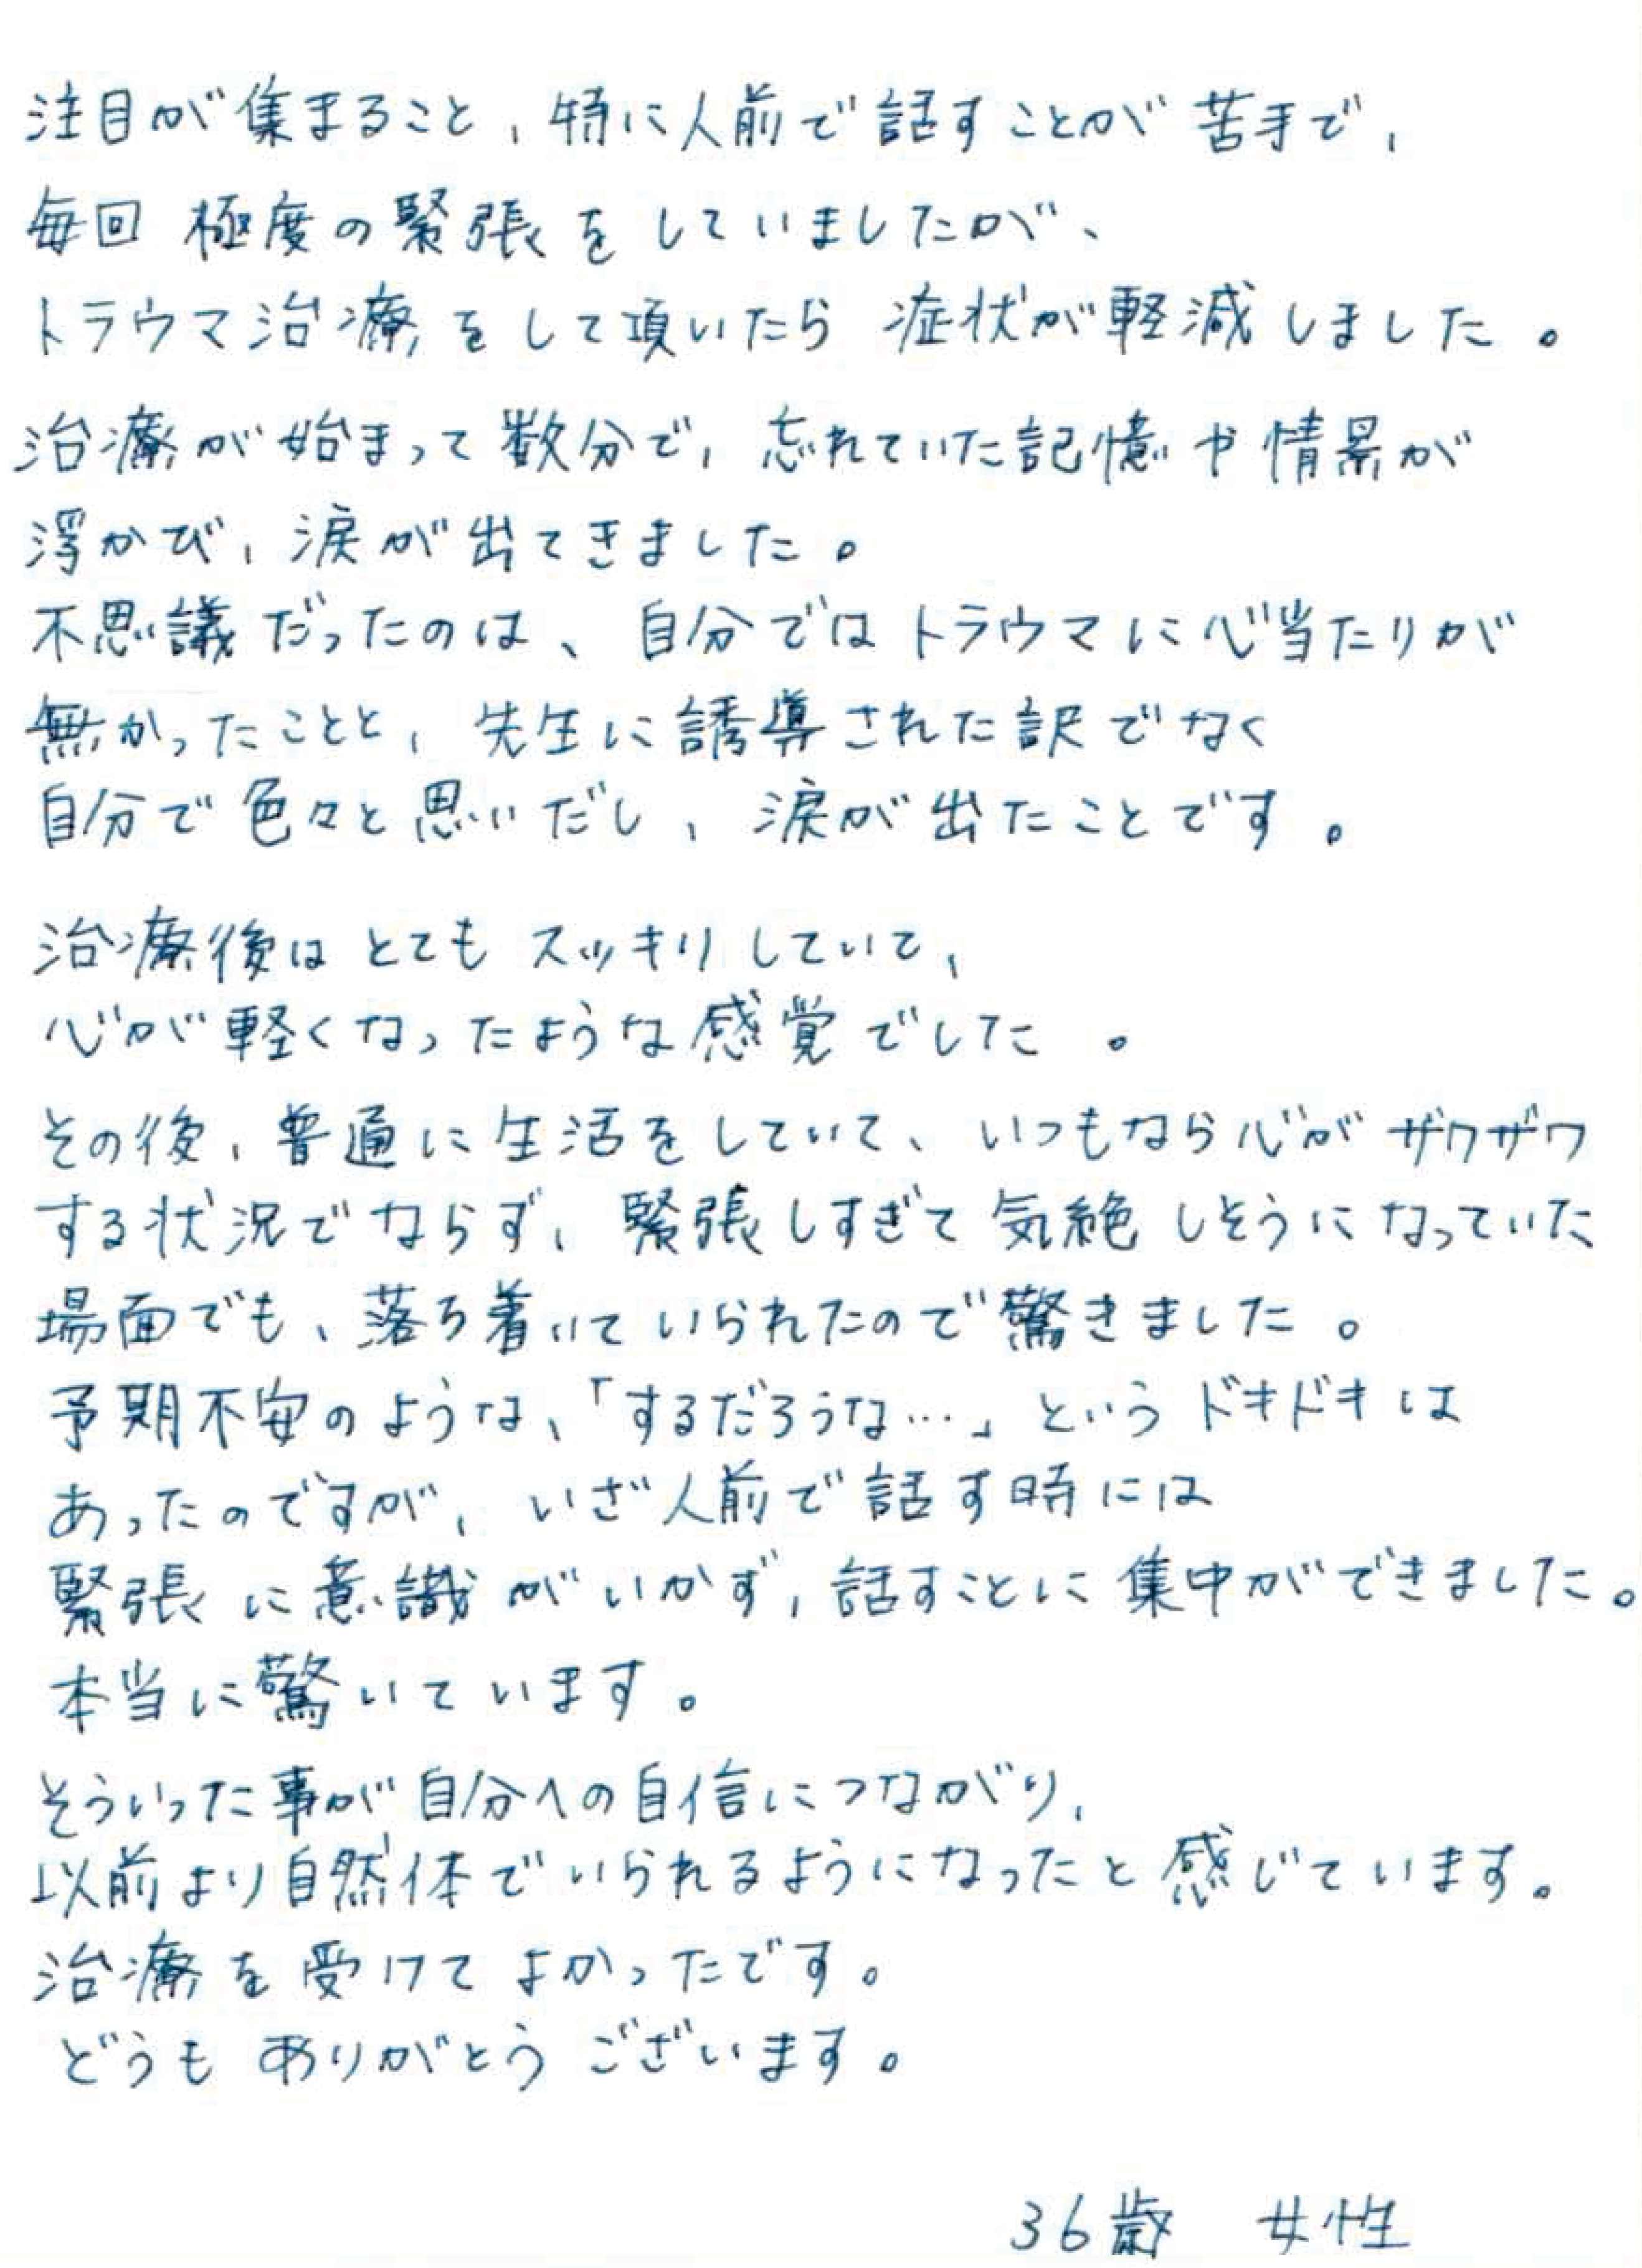 注目が集まること，特に人前で話すことが苦手で，
毎回 極度の緊張をしていましたが、
トラウマ治療をして頂いたら 症状が軽減しました。
治療が始まって数分で，忘れていた記憶や情景が
浮かび，涙が出てきました。
不思議だったのは、自分ではトラウマに心当たりが
無かったことと，先生に誘導された訳でなく
自分で色々と思いだし，涙が出たことです。
治療後はとてもスッキリしていて，
心が軽くなったような感覚でした。
その後，普通に生活をしていて、いつもなら心がザワザワ
する状況でならず，緊張しすぎて気絶しそうになっていた
場面でも、落ち着いていられたので驚きました。
予期不安のような、「するだろうな…」というドキドキは
あったのですが，いざ人前で話す時には
緊張に意識がいかず，話すことに集中ができました。
本当に驚いています。
そういった事が自分への自信につながり，
以前より自然体でいられるようになったと感じています。
治療を受けてよかったです。
どうもありがとうございます。
36歳 女性